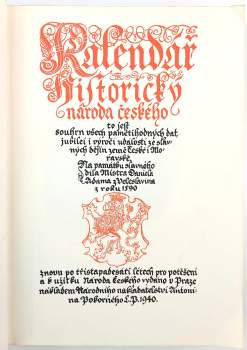 Kalendář
Historický
národa českého
to jest
souhrn všech pamětihodných dat
jubileí i výročí událostí ze slav-
ných dějin země České i Mo-
ravské
Na památku slavného
díla Mistra Daniele
Adama z Veleslavína
z roku 1590
znovu po třistapadesáti létech pro potěšení
a k užitku Národa Českého vydáno v Praze
nákladem Národního nakladatelství Antoní-
na Pokorného L.P. 1940.